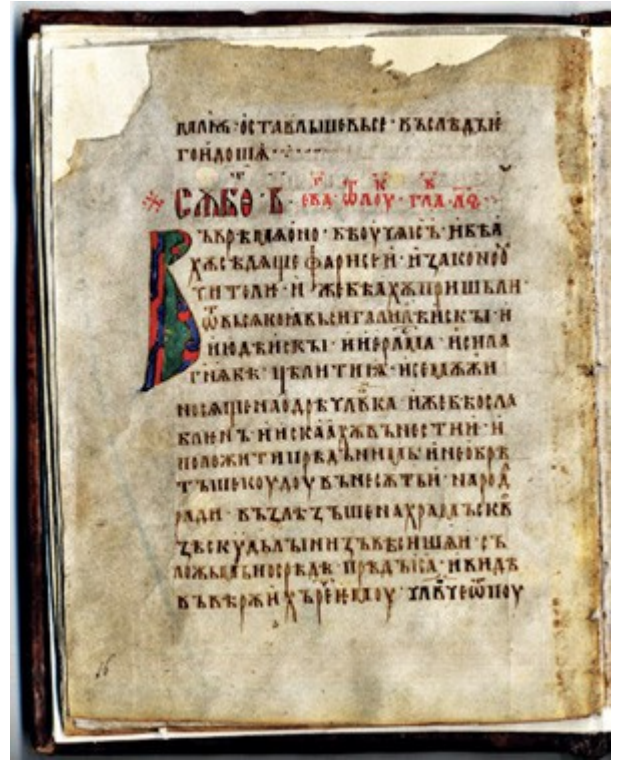 оставльшовьсе· въслѣдъне
гоидошѧ
Сѫбѡ· в҃· еѵа ѿлоу· гла·
Въврѣмѧоно· бѣоучѧіс҃ъ· ибѣа
хѫсѣдѧще фарисеи· изаконоо
ѿвьсякоѧвьсигалилѣискъі· и
июдѣискъі· ииерл҃ма· исила
г҃нябѣ· цѣлитиѩ· исемѫжи
носѧщенаодрѣчл҃вка· ижебѣосла
бленъ· иискаахѫвънестии· и
положитипрѣдънимь· инеобрѣ
тъшекоудоувънесѫтьи· народ
ради· възлѣзъшенахрамъскв
ꙁѣскудьлъінизъвѣсишѧи· съ
прѣдъі҃са· ивидѣ
въвѣрѫихъреч҃емоу· чл҃вчеѿпоу